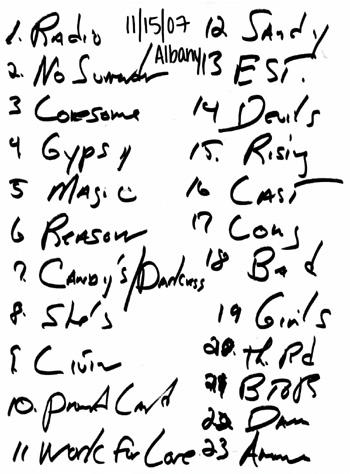 11/15/07
Albany
1. Radio
2. No Surrender
3 Lonesome
4 Gypsy
5 Magic
6 Reason
7. Candy's/Darkness
8. She's
9. Livin
10. Prmd Land
11 Work for Love
12 Sandy
13 E ST.
14 Devils
15. Rising
16 Last
17 Long
18 Bad
19 Girls
20. Th. Rd
21 BTOR
22 Danc
23 Amer